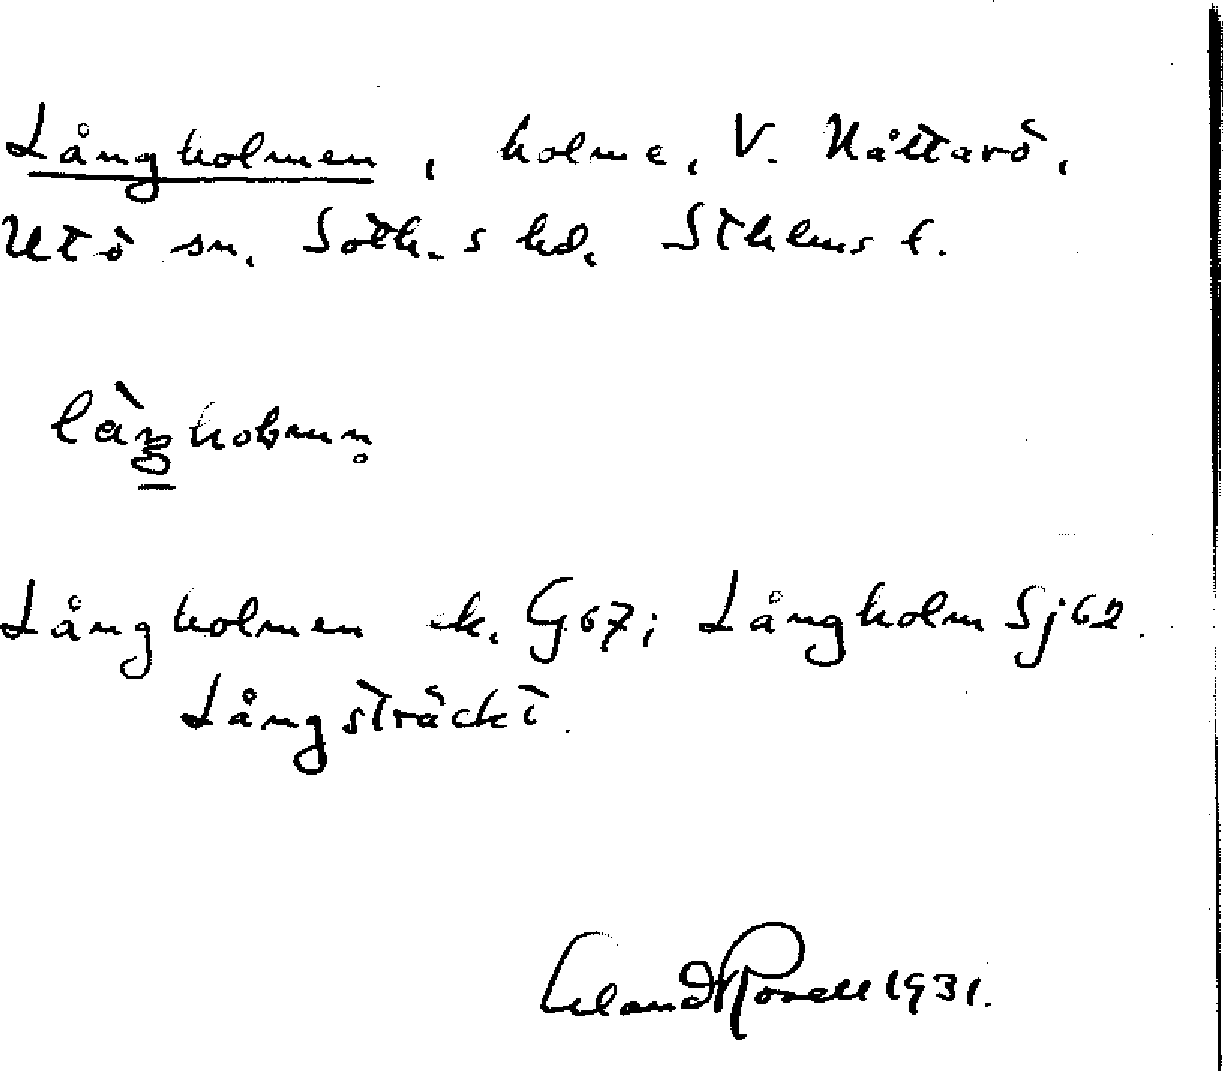 Långholmen, holme, V. Nåttarö,
Utö sn, Soth.s hd, Sthlms l.
Långholmen ek. G67; Långholm Sj62.
Långsträckt.
Erland Rosell 1931.